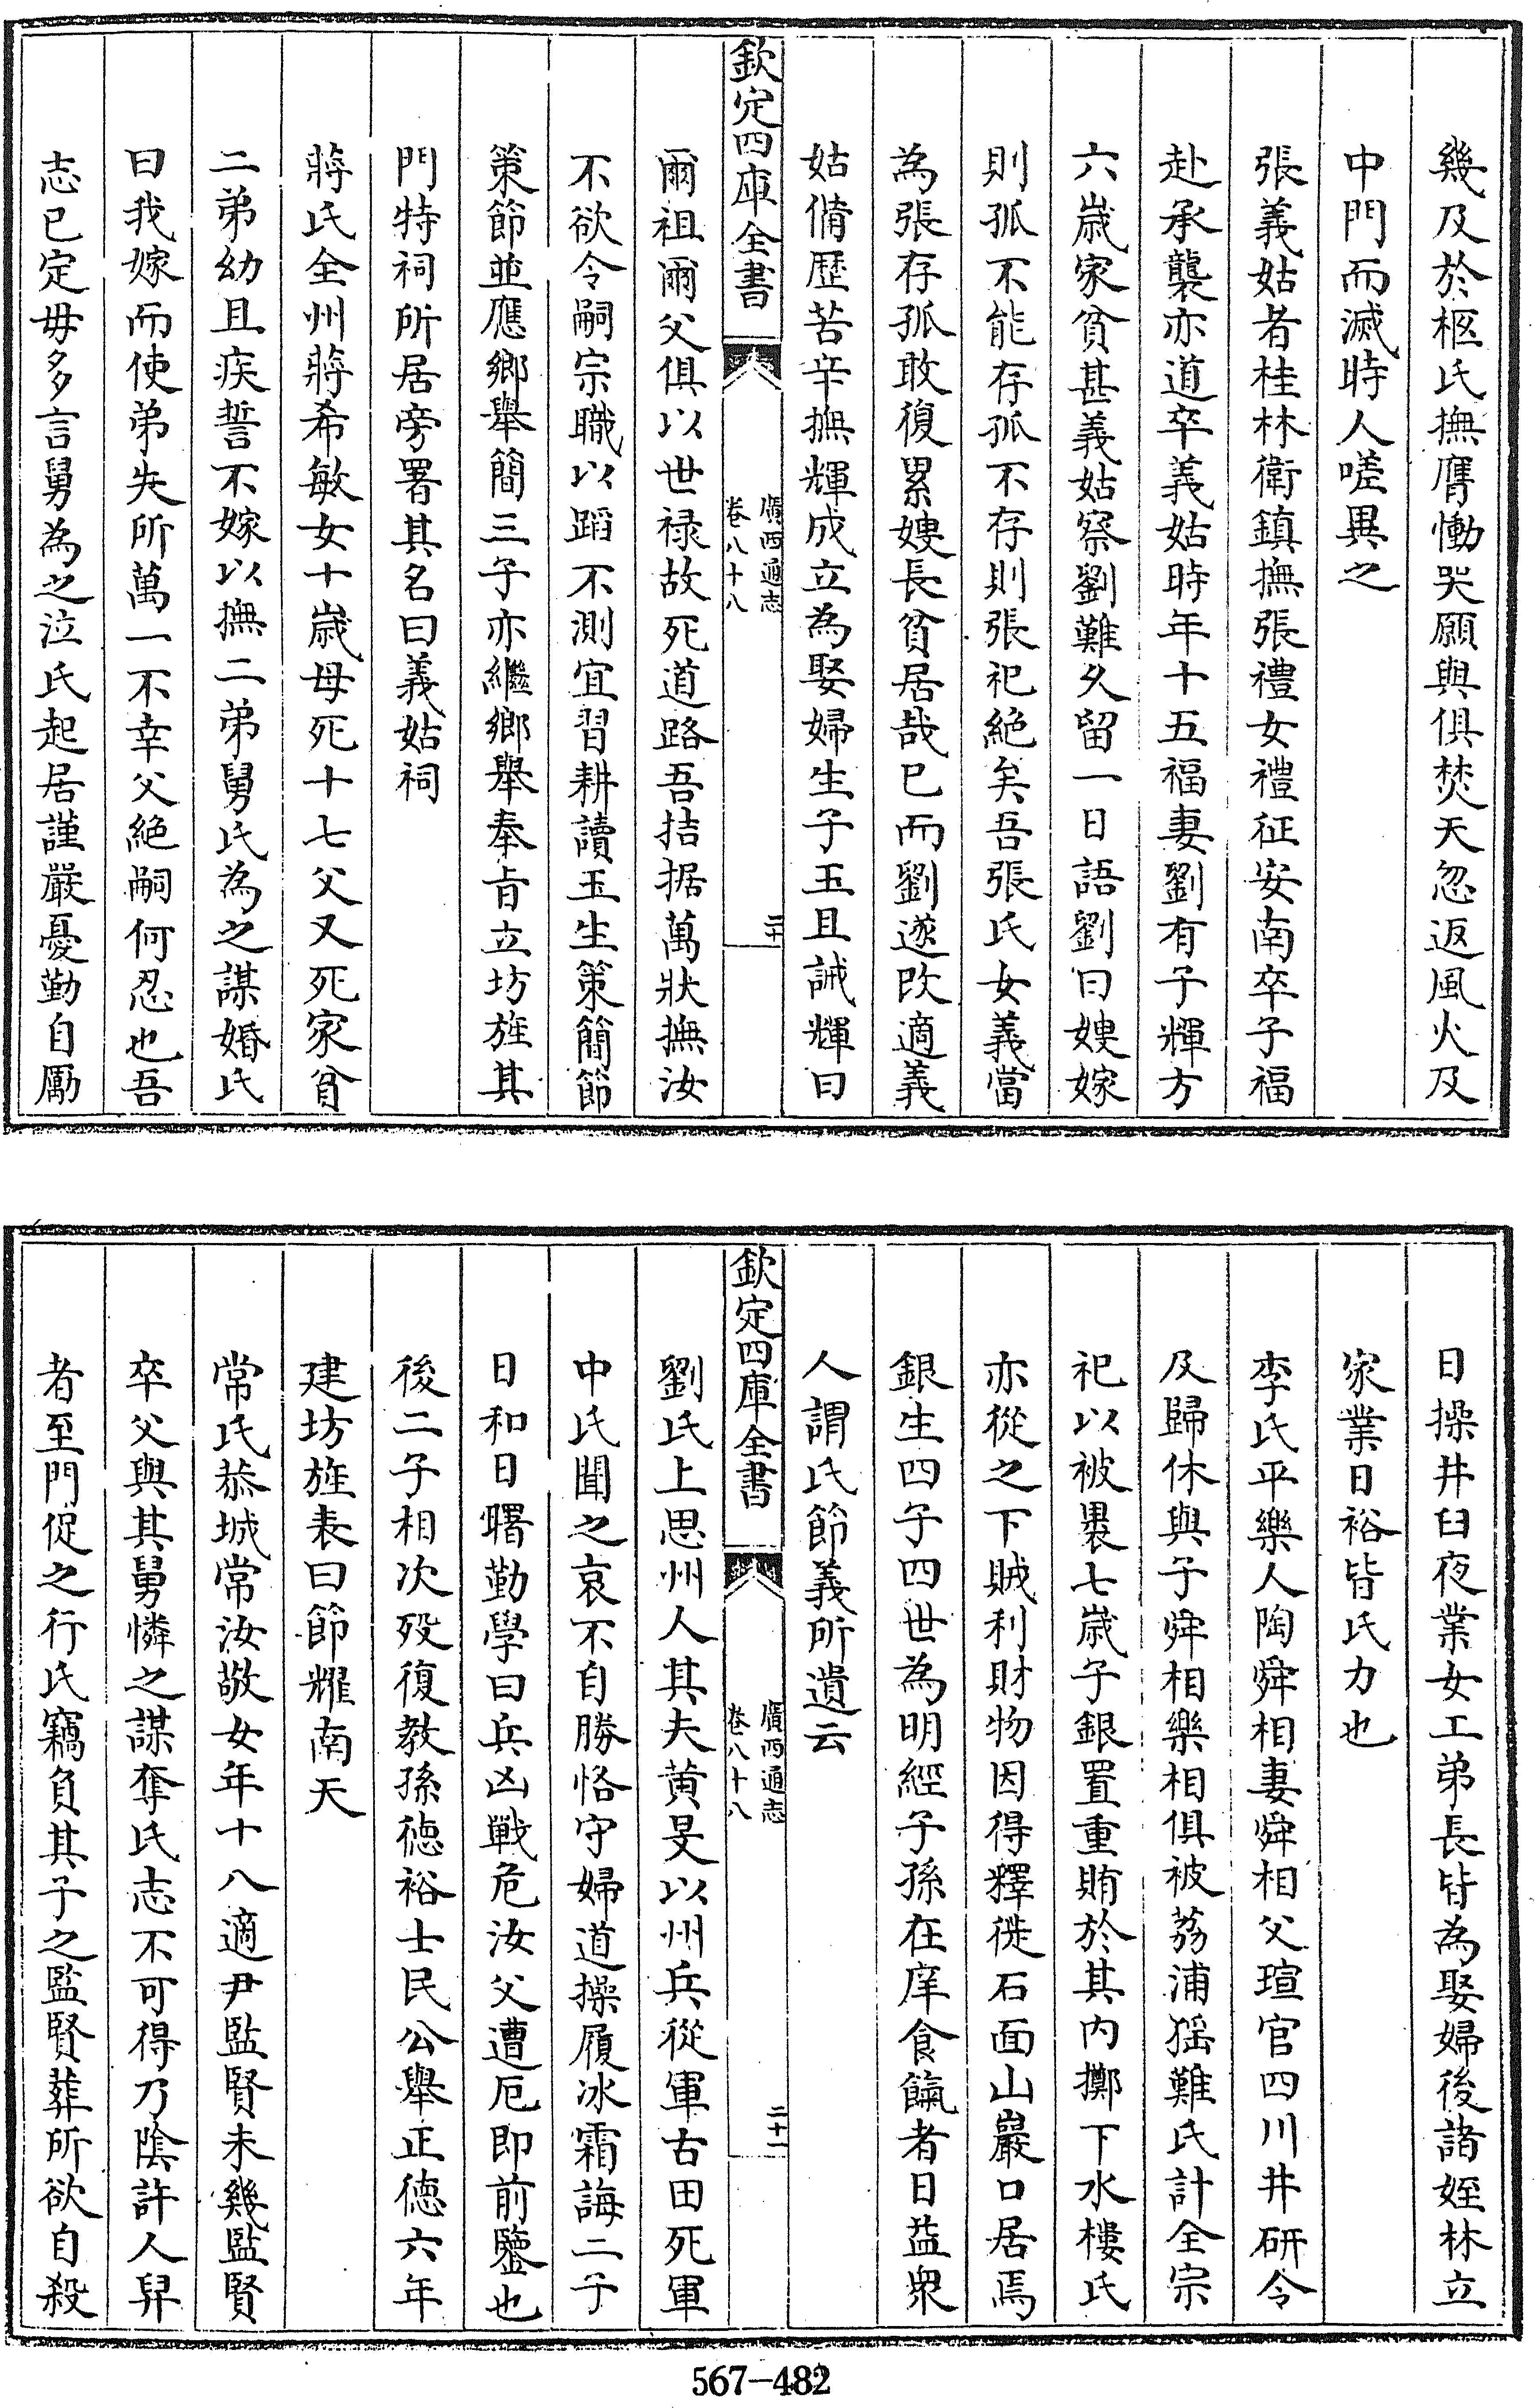 幾及於柩氏撫膺慟哭願與俱焚天忽返風火及
中門而滅時人嗟異之
張義姑者桂林衛鎮撫張禮女禮征安南卒子福
赴承襲亦道卒義姑時年十五福妻劉有子輝方
六歲家貧甚義姑察劉難久留一日語劉曰嫂嫁
則孤不能存孤不存則張祀絕矣吾張氏女義當
為張存孤敢復累嫂長貧居哉已而劉遂改適義
姑備歷苦辛撫輝成立為娶婦生子玉且誡輝曰
欽定四庫全書
廣西通志
卷八十八
二十
爾祖爾父俱以世祿故死道路吾拮据萬狀撫汝
不欲令嗣宗職以蹈不測宜習耕讀玉生策簡節
策節並應鄉舉簡三子亦繼鄉舉奉旨立坊旌其
門特祠所居旁署其名曰義姑祠
蔣氏全州蔣希敏女十歲母死十七父又死家貧
二弟幼且疾誓不嫁以撫二弟舅氏為之謀婚氏
曰我嫁而使弟失所萬一不幸父絕嗣何忍也吾
志已定毋多言舅為之泣氏起居謹嚴憂勤自勵
日操井臼夜業女工弟長皆為娶婦後諸姪林立
家業日裕皆氏力也
李氏平樂人陶舜相妻舜相父瑄官四川井研令
及歸休與子舜相樂相俱被荔浦猺難氏計全宗
祀以被裹七歲子銀置重賄於其內擲下水樓氏
亦從之下賊利財物因得釋徙石面山巖口居焉
銀生四子四世為明經子孫在庠食餼者日益衆
人謂氏節義所遺云
欽定四庫全書
廣西通志
卷八十八
二十一
劉氏上思州人其夫黄旻以州兵從軍古田死軍
中氏聞之哀不自勝恪守婦道操履冰霜誨二子
日和日曙勤學曰兵凶戰危汝父遭厄即前鑒也
後二子相次歿復教孫德裕士民公舉正德六年
建坊旌表曰節耀南天
常氏恭城常汝敬女年十八適尹監賢未幾監賢
卒父與其舅憐之謀奪氏志不可得乃陰許人舁
者至門促之行氏竊負其子之監賢葬所欲自殺
567-482